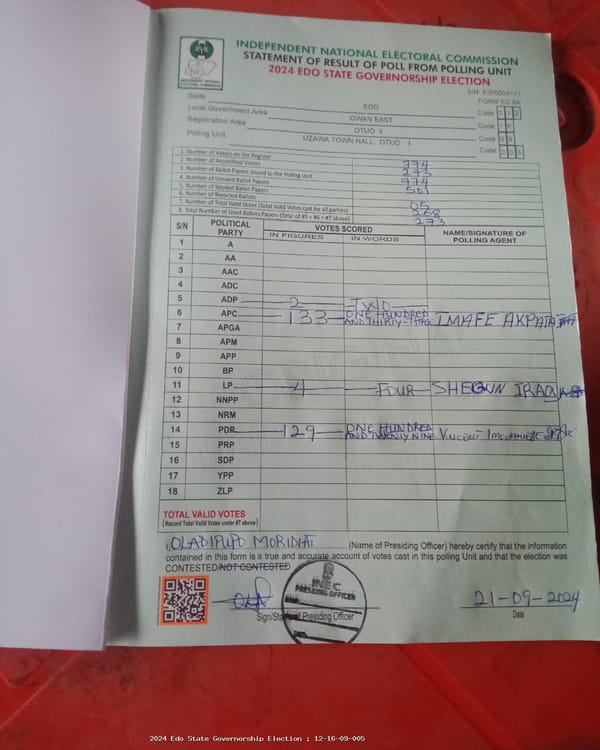 INDEPENDENT NATIONAL ELECTORAL COMMISSION
STATEMENT OF RESULT OF POLL FROM POLLING UNIT
2024 EDO STATE GOVERNORSHIP ELECTION
S/N EG/0004171
FORM EC 8A
State EDO Code 012
Local Government Area OWAN EAST Code 16
Registration Area OTUO II Code 09
Polling Unit UZAWA TOWN HALL, OTUO I Code 005
1. Number of Voters on the Register 774
2. Number of Accredited Voters 273
3. Number of Ballot Papers Issued to the Polling Unit 774
4. Number of Unused Ballot Papers 501
5. Number of Spoiled Ballot Papers
6. Number of Rejected Ballots 05
7. Number of Total Valid Votes (Total Valid Votes cast for all parties) 268
8. Total Number of Used Ballots Papers (Total of #5 + #6 + #7 above) 273
S/N POLITICAL PARTY VOTES SCORED NAME/SIGNATURE OF POLLING AGENT
IN FIGURES IN WORDS
1 A
2 AA
3 AAC
4 ADC
5 ADP 2 TWO
6 APC 133 ONE HUNDRED AND THIRTY-THREE IMAFE AKPATA
7 APGA
8 APM
9 APP
10 BP
11 LP 4 FOUR SHEGUN IRAO
12 NNPP
13 NRM
14 PDP 129 ONE HUNDRED AND TWENTY NINE Vincent
15 PRP
16 SDP
17 YPP
18 ZLP
TOTAL VALID VOTES
(Record Total Valid Votes under #7 above)
I, OLADIPUPO MORIDIAT (Name of Presiding Officer) hereby certify that the information
contained in this form is a true and accurate account of votes cast in this polling Unit and that the election was
CONTESTED/NOT CONTESTED
INEC
PRESIDING OFFICER
21-09-2024
Sign/Stamp of Presiding Officer Date
2024 Edo State Governorship Election : 12-16-09-005